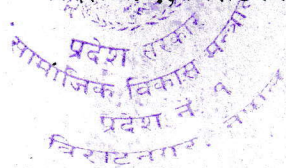 प्रदेश सरकार
सामाजिक विकास मन्त्रा
प्रदेश नं. १
विराटनगर, नेपाल